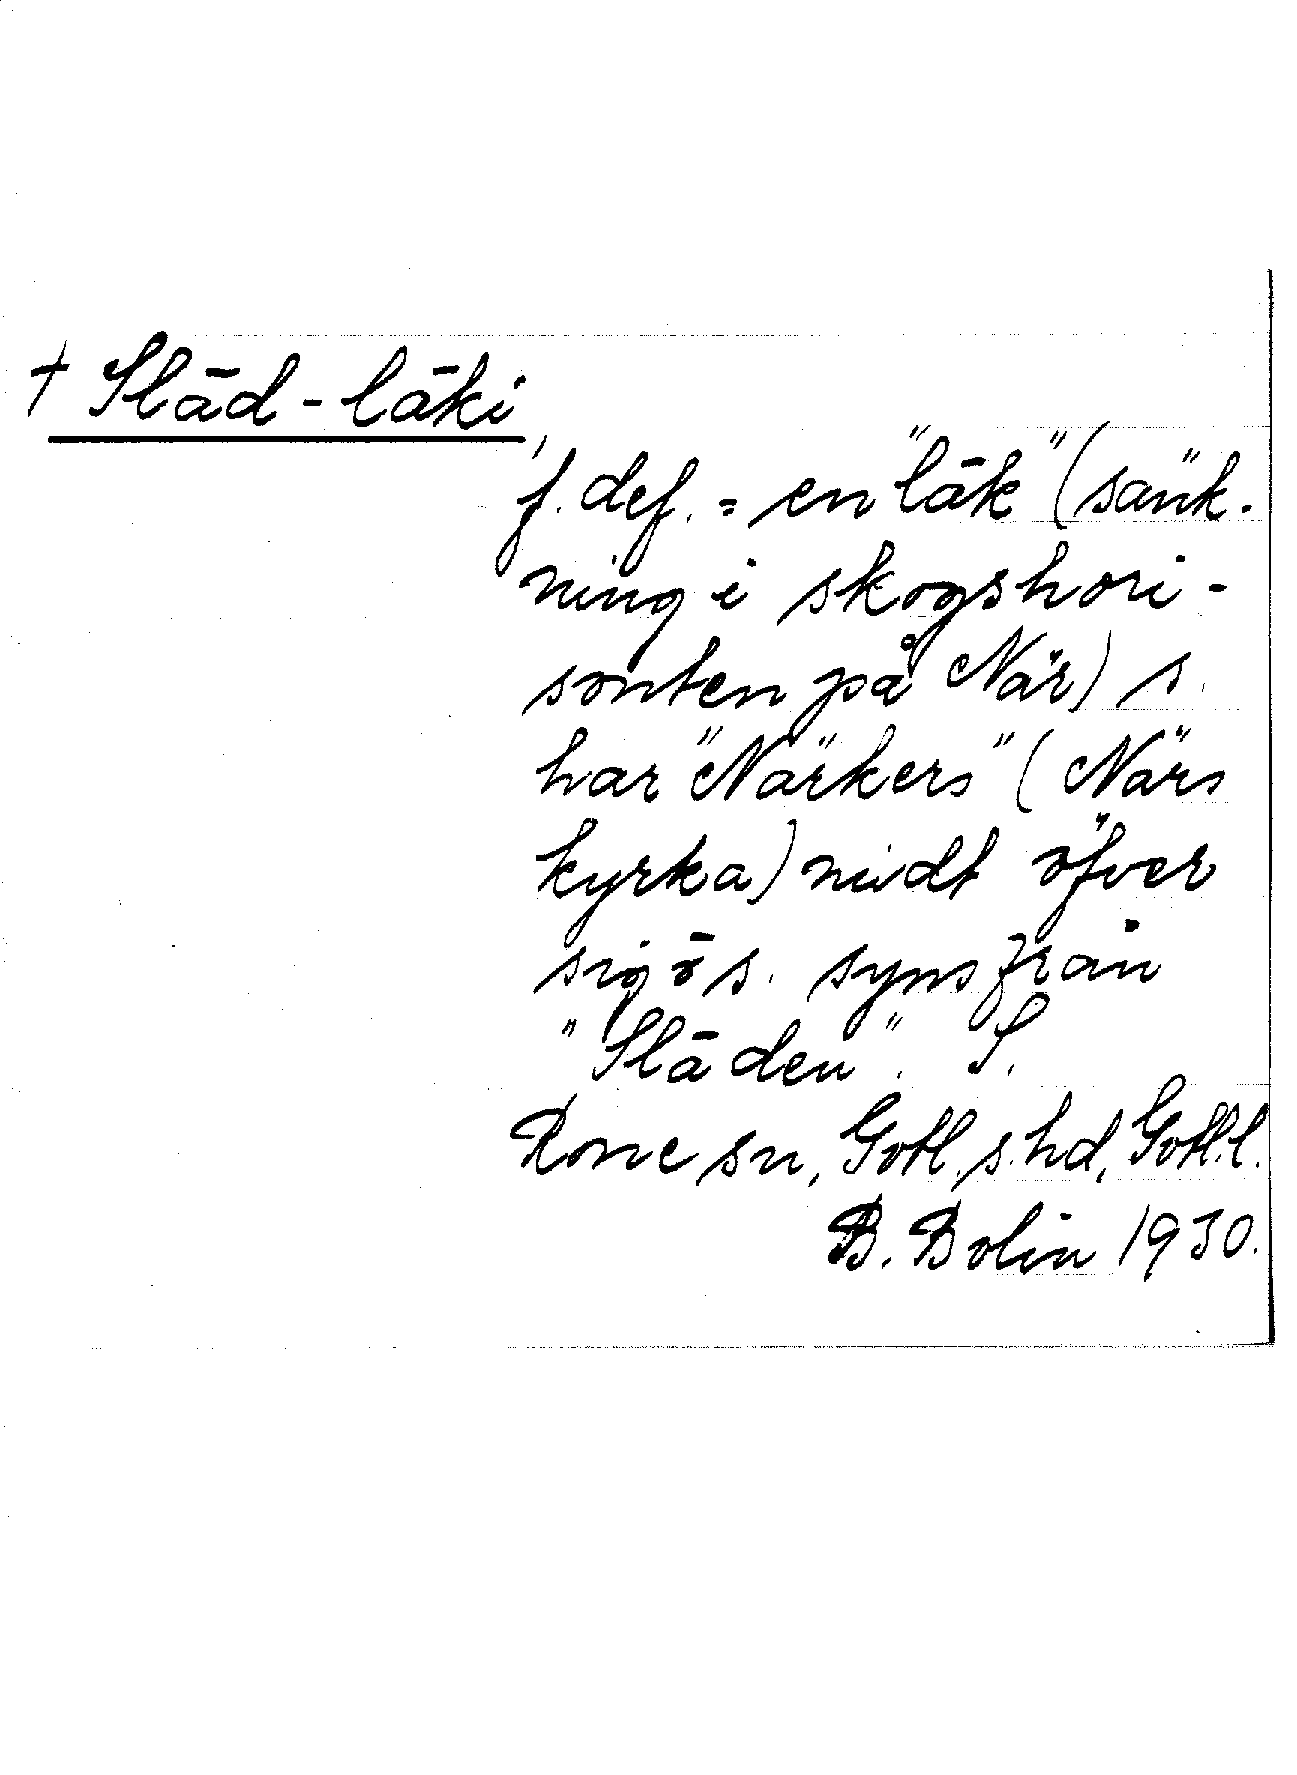 + Släd-läki,
f. def. = en "läk" (sänk-
ning i skogshori-
sonten på När) s.
har "Närkers" (Närs
kyrka) midt öfver
sig o s. syns från
"Släden". S.
Rone sn, Gotl. s. hd, Gotl. l.
B. Bolin 1930.